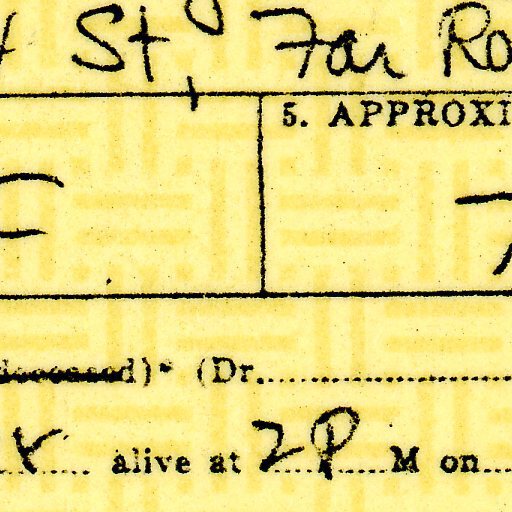 St, Far Ro
5. APPROXI
F 7
deceased)* (Dr.
alive at 2 P M on